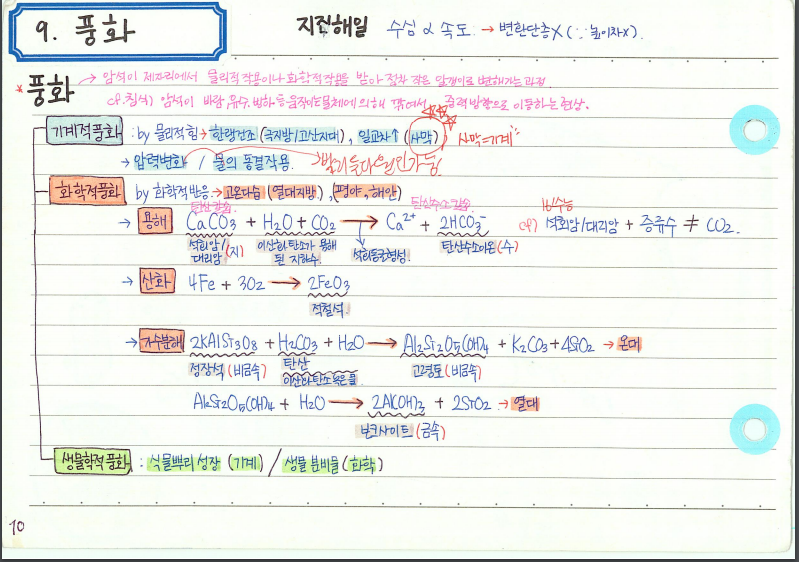 9. 풍화
지진해일 수심 ∝ 속도 → 변환단층X (∵ 높이차X).
* 풍화 → 암석이 제자리에서 물리적 작용이나 화학적 작용을 받아 점차 작은 알갱이로 변해가는 과정
cf. 침식) 암석이 바람, 유수, 빙하 등 움직이는 물체에 의해 깎여서 중력 방향으로 이동하는 현상.
기계적풍화 : by 물리적힘 → 한랭건조 (극지방/고산지대), 일교차↑ (사막) 사막=기계"
→ 압력변화 / 물의 동결작용.
화학적풍화 by 화학적반응 → 고온다습 (열대지방), (평야, 해안)
탄산칼슘. 탄산수소칼슘.
→ 용해 CaCO3 + H2O + CO2 → Ca2+ + 2HCO3-
16수능
cf) 석회암/대리암 + 증류수 ≠ CO2.
석회암/대리암 (지) 이산화탄소가 용해된 지하수. 석회동굴형성. 탄산수소이온 (수)
→ 산화 4Fe + 3O2 → 2FeO3
적철석.
→ 가수분해 2KAlSi3O8 + H2CO3 + H2O → Al2Si2O5(OH)4 + K2CO3 + 4SiO2 → 온대
정장석 (비금속) 탄산 고령토 (비금속)
이산화탄소 녹은 물.
Al2Si2O5(OH)4 + H2O → 2Al(OH)3 + 2SiO2 → 열대
보크사이트 (금속)
생물학적풍화 : 식물뿌리 성장 (기계) / 생물 분비물 (화학)
10